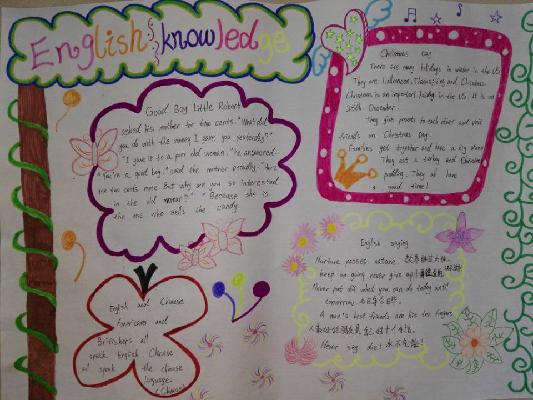 English knowledge
Good Boy Little Robert
asked his mother for two cents. "What did
you do with the money I gave you yesterday?"
"I gave it to a poor old woman," he answered.
"You're a good boy," said the mother proudly. "Here
are two cents more. But why are you so interested
in the old woman?" "Because she is
the one who sells the candy
Christmas Day
There are many holidays in winter in the US.
They are Halloween, Thanksgiving and Christmas.
Christmas is an important holiday in the US. It is on
25th December.
They give presents to each other and visit
friends on Christmas Day.
Families get together and have a big dinner.
They eat a turkey and Christmas
pudding. They all have
a good time!
English and Chinese
Americans and
Britishers all
speak English Chinese
all speak the chinese
languages
(Chinese)
English saying
Nurture passes nature.
keep on going never give up!
Never put off what you can do today until
tomorrow. 今日事今日毕.
A man's best friends are his ten fingers.
Never say die! 永不气馁!